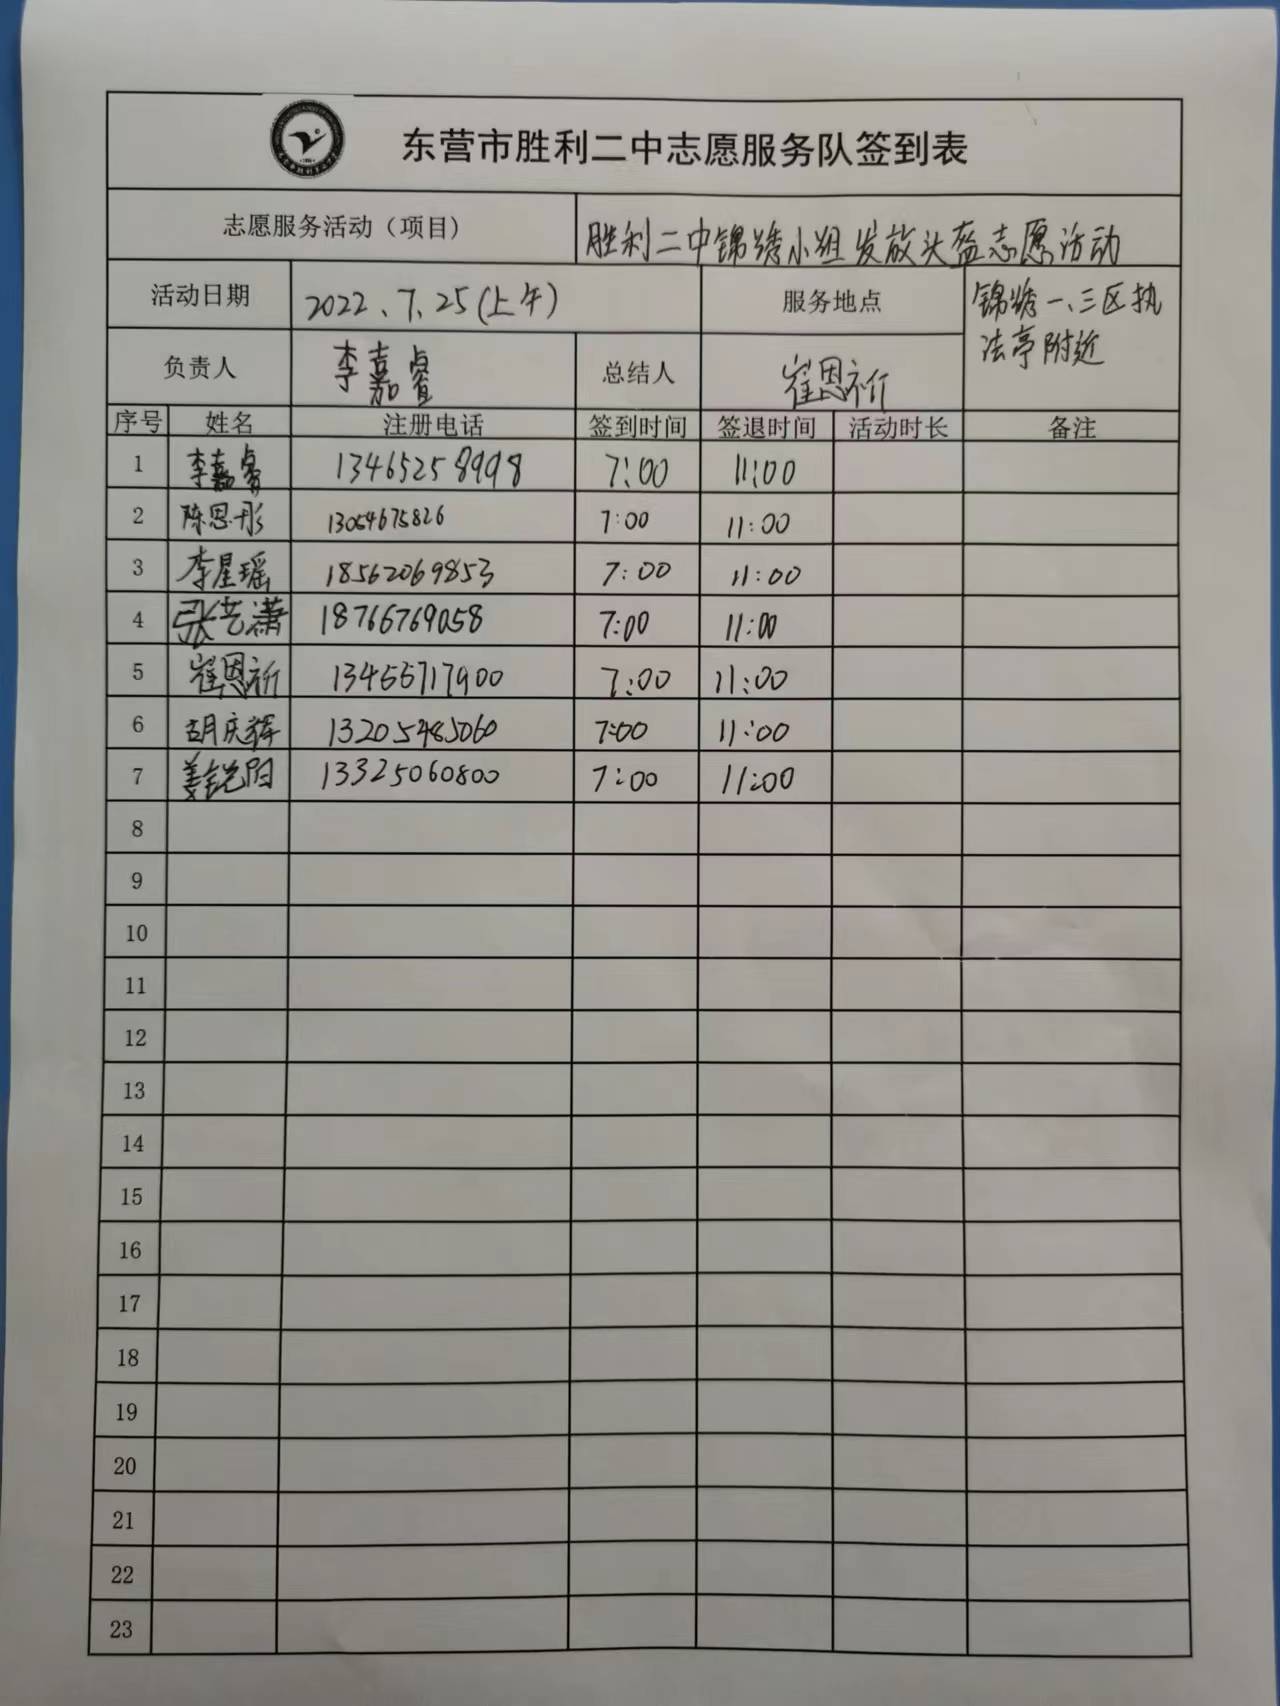 东营市胜利二中志愿服务队签到表
志愿服务活动（项目） 胜利二中锦绣小组发放头盔志愿活动
活动日期 2022.7.25(上午) 服务地点 锦绣一、三区执
法亭附近
负责人 李嘉睿 总结人 崔恩祈
序号 姓名 注册电话 签到时间 签退时间 活动时长 备注
1 李嘉睿 13465258998 7:00 11:00
2 陈思彤 13054675826 7:00 11:00
3 李星瑶 18562069853 7:00 11:00
4 张艺潇 18766769058 7:00 11:00
5 崔恩祈 13455717900 7:00 11:00
6 胡庆辉 13205485060 7:00 11:00
7 姜锐阳 13325060800 7:00 11:00
8
9
10
11
12
13
14
15
16
17
18
19
20
21
22
23